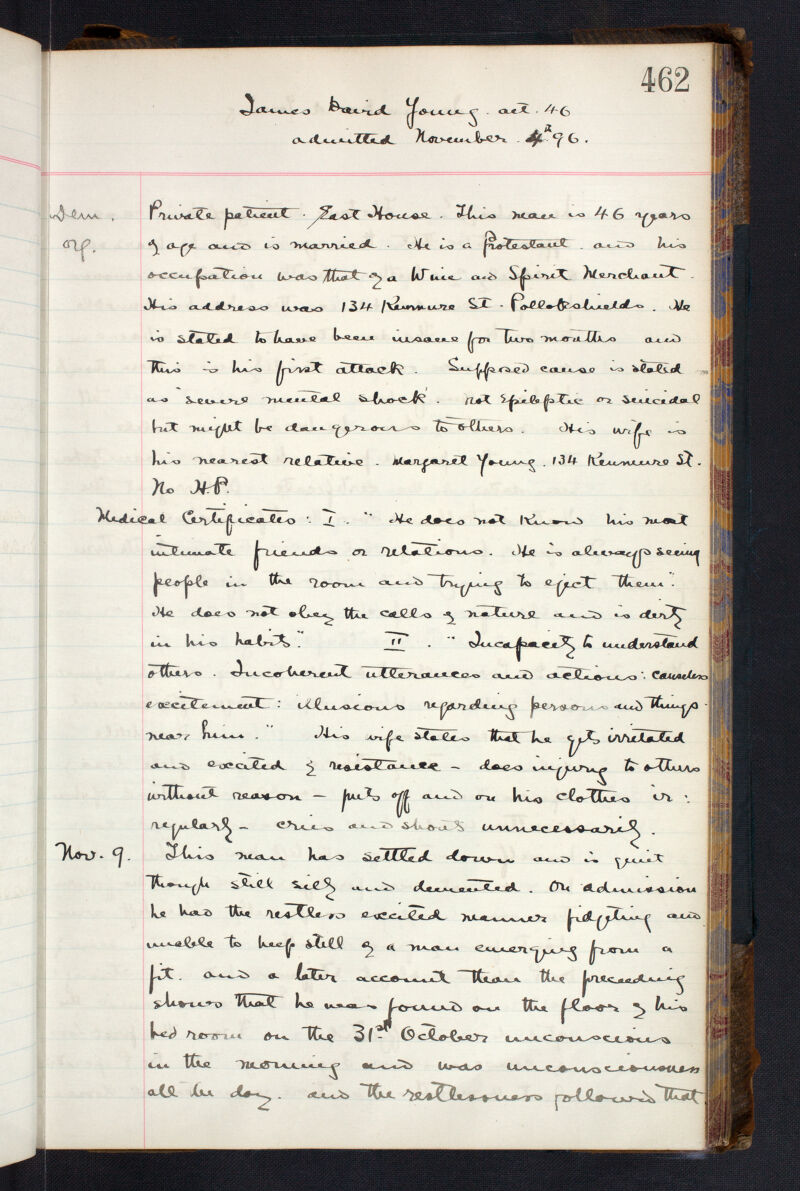 462
James David Young. aet. 46
admitted November. 4th 96.
Dem.
org.
Private patient. East House. This man is 46 years
of age and is married. He is a Protestant. and his
occupation was that of a Wine and Spirit Merchant.
His address was 134 Kenmure St. Pollokshields. He
is stated to have been insane for two months and
this is his first attack. Supposed cause is stated
as "severe mental shock". not epileptic or suicidal
but might be dangerous to others. His wife is
his nearest relative. Margaret Young. 134 Kenmure St.
No H.P.
Medical Certificates: I. "He does not know his most
intimate friends or relations. He is always seeing
people in the room and trying to eject them".
He does not obey the calls of nature and is dirty
in his habits." II. "Incapacity to understand
others. Incoherent utterances and actions: causeless
excitement: illusions regarding persons and things
near him." His wife states that he gets irritated
and excited & resistance - does injury to others
without reason - puts off and on his clothes ir:
regularly - cries and shouts unnecessarily.
Nov. 9. This man has settled down and is quiet
though still silly and demented. On admission
he had the restless excited manner fidgeting and
unable to keep still of a man emerging from a
fit. and a later account than the preceeding
shows that he was found on the floor of his
bed room on the 31st October unconscious
in the morning and was unconsciousness
all the day. and the restlessness followed that